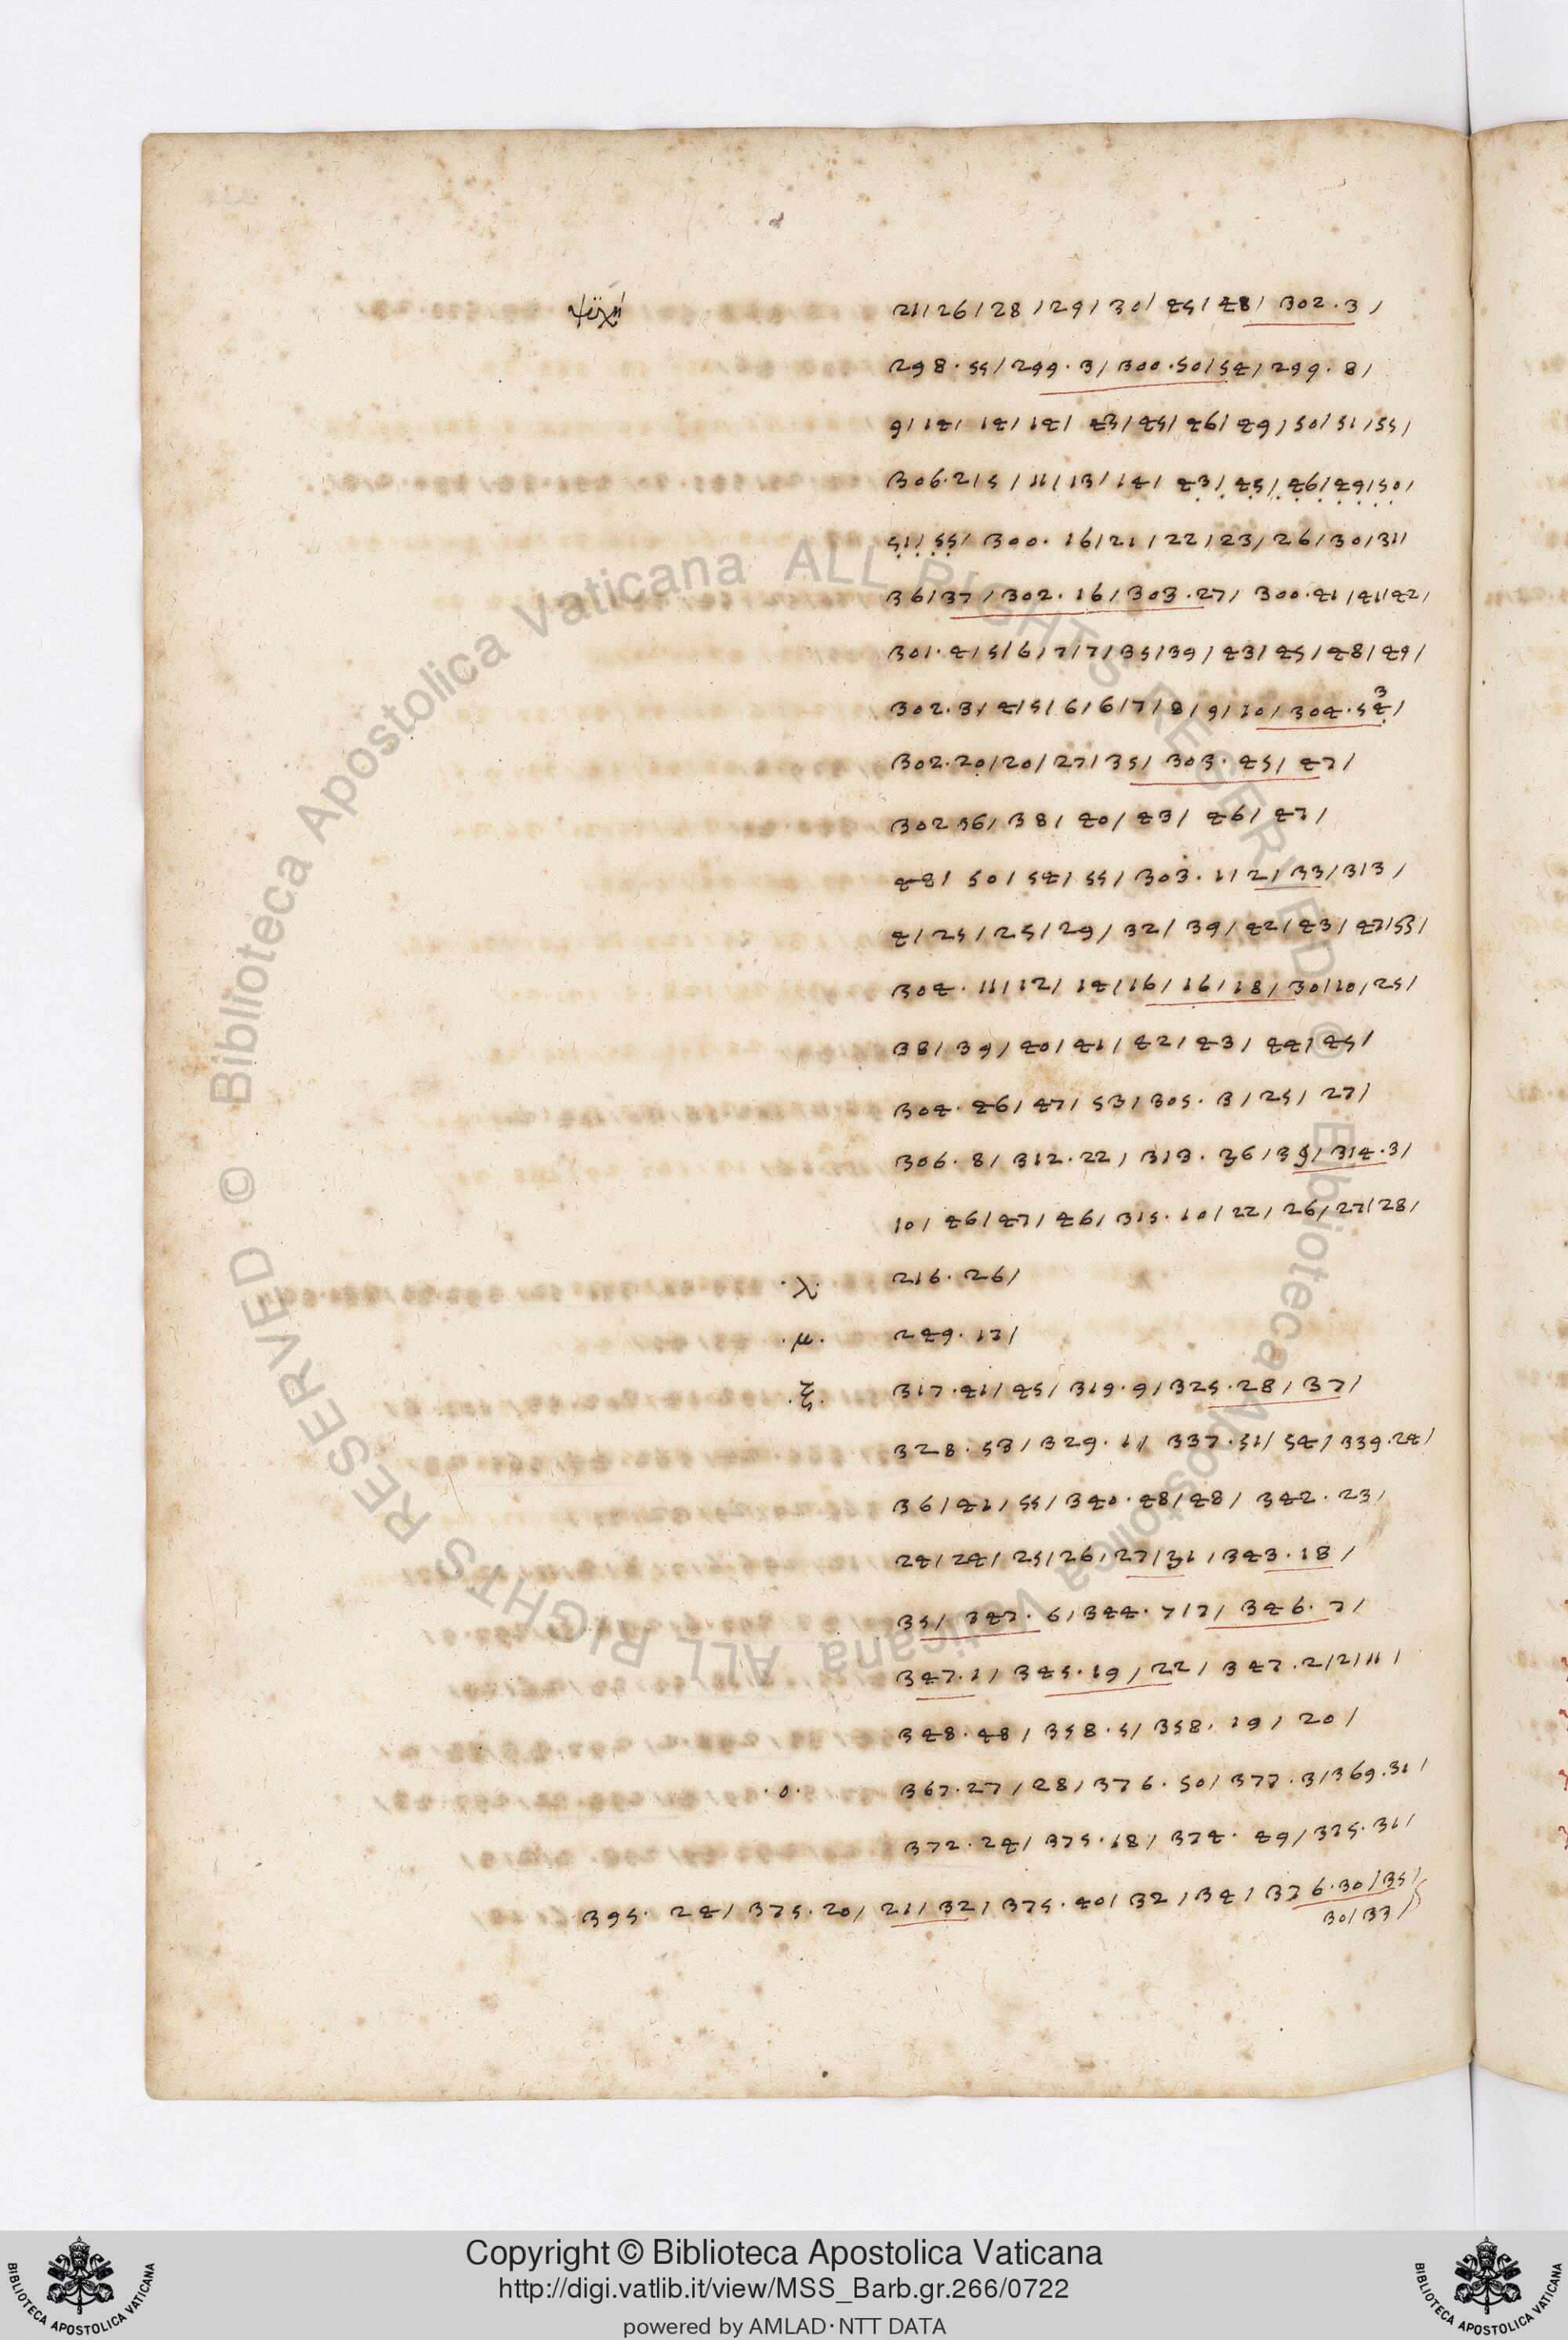 ψυχή 21/26/28/29/30/45/48/302.3/
298.55/299.3/300.50/54/299.8/
9/14/14/14/43/45/46/49/50/51/55/
306.2/5/11/13/14/43/45/46/49/50/
51/55/300.16/21/22/23/26/30/31/
36/37/302.16/303.27/300.41/41/42/
301.4/5/6/7/7/35/39/43/45/48/49/
3
302.3/4/5/6/6/7/8/9/10/304.54/
302.20/20/27/35/303.45/47/
302 36/38/40/43/46/47/
48/50/54/55/303.1/2/33/313/
4/25/25/29/32/39/42/43/47/53/
304.11/12/14/16/16/18/30/10/25/
38/39/40/41/42/43/44/45/
304.46/47/53/305.3/25/27/
306.8/312.22/313.36/39/314.3/
10/46/47/46/315.10/22/26/27/28/
.λ. 216.26/
.μ. 249.17/
.ξ. 317.41/45/319.9/325.28/37/
328.53/329.1/337.51/54/339.24/
36/41/55/340.48/48/342.23/
24/24/25/26/27/31/343.18/
35/347.6/344.7/7/346.7/
347.1/345.19/22/347.2/2/11/
348.48/358.5/358.19/20/
.ο. 367.27/28/376.50/377.3/369.31/
372.24/375.18/374.49/375.31/
395.24/375.20/21/32/375.40/32/34/376.30/35/
30/33/
Biblioteca Apostolica Vaticana ALL RIGHTS RESERVED ©
Biblioteca Apostolica Vaticana ALL RIGHTS RESERVED ©
Copyright © Biblioteca Apostolica Vaticana
http://digi.vatlib.it/view/MSS_Barb.gr.266/0722
powered by AMLAD·NTT DATA
BIBLIOTECA APOSTOLICA VATICANA
BIBLIOTECA APOSTOLICA VATICANA